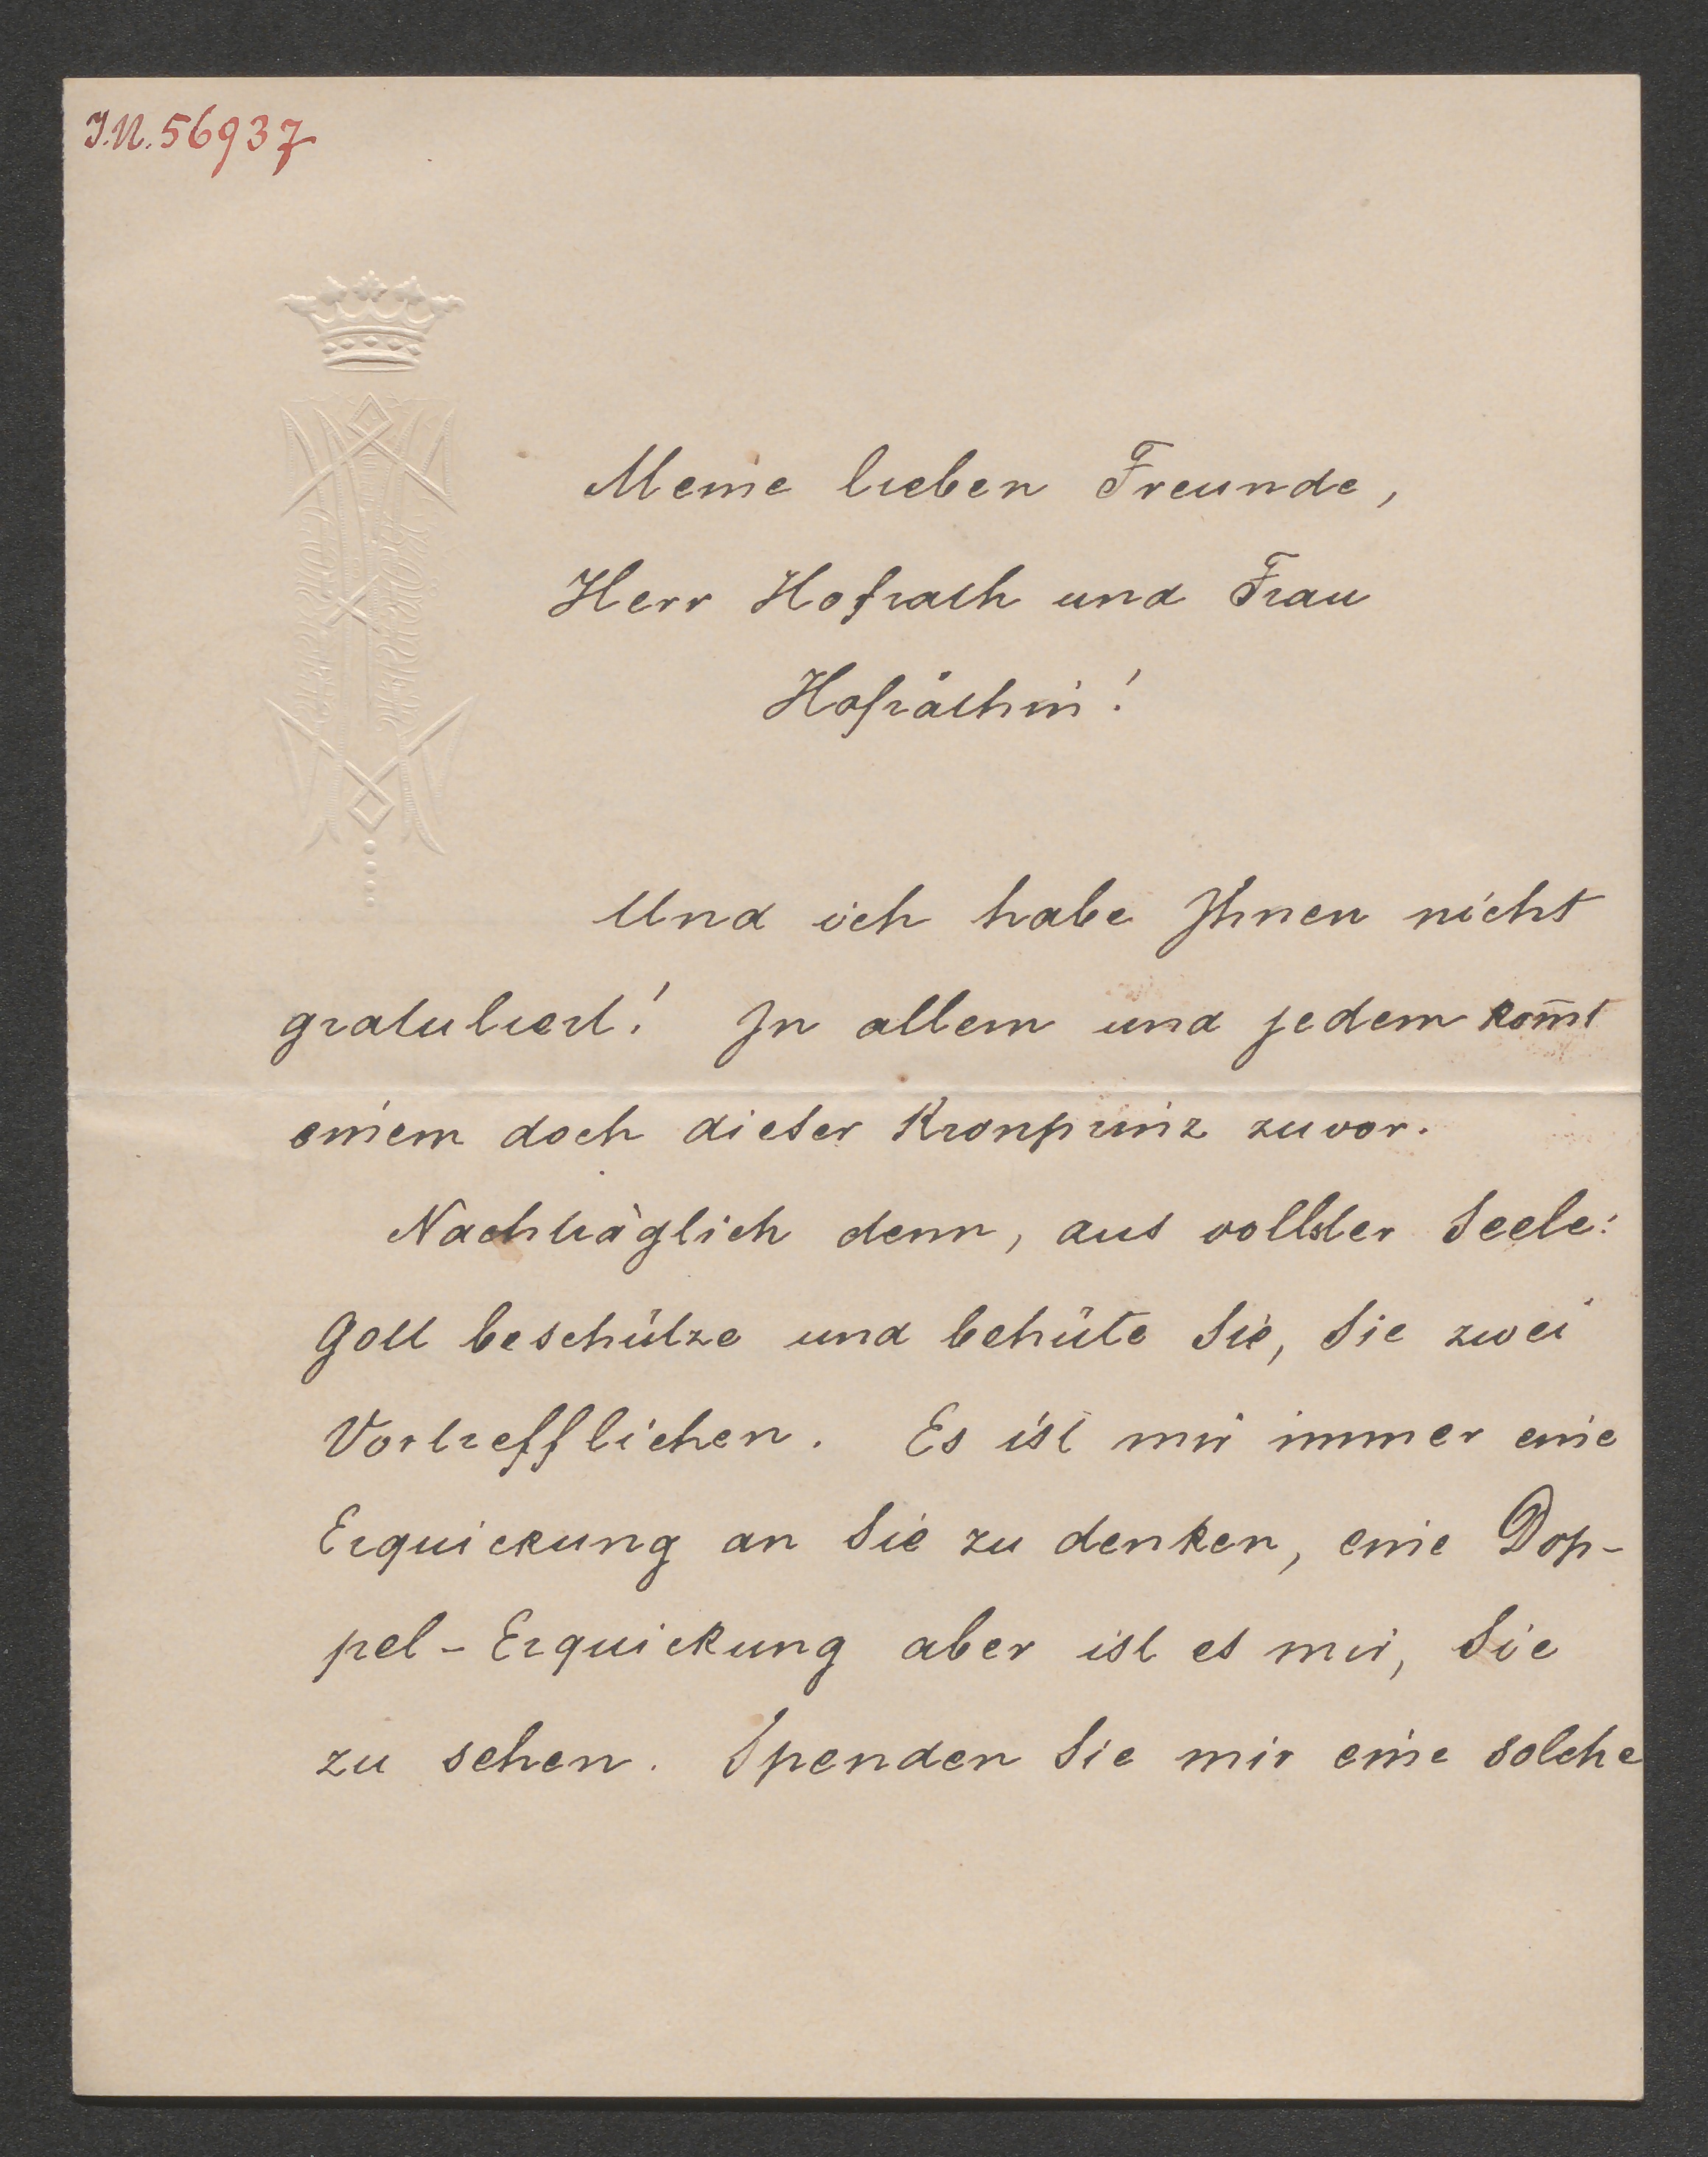 I.N. 56937
Meine lieben Freunde,
Herr Hofrath und Frau
Hofräthin!
Und ich habe Ihnen nicht
gratuliert! In allem und jedem kom̄t
einem doch dieser Kronprinz zuvor.
Nachträglich denn, aus vollster Seele:
Gott beschütze und behüte Sie, Sie zwei
Vortrefflichen. Es ist mir immer eine
Erquickung an Sie zu denken, eine Dop-
pel-Erquickung aber ist es mir, Sie
zu sehen. Spenden Sie mir eine solche